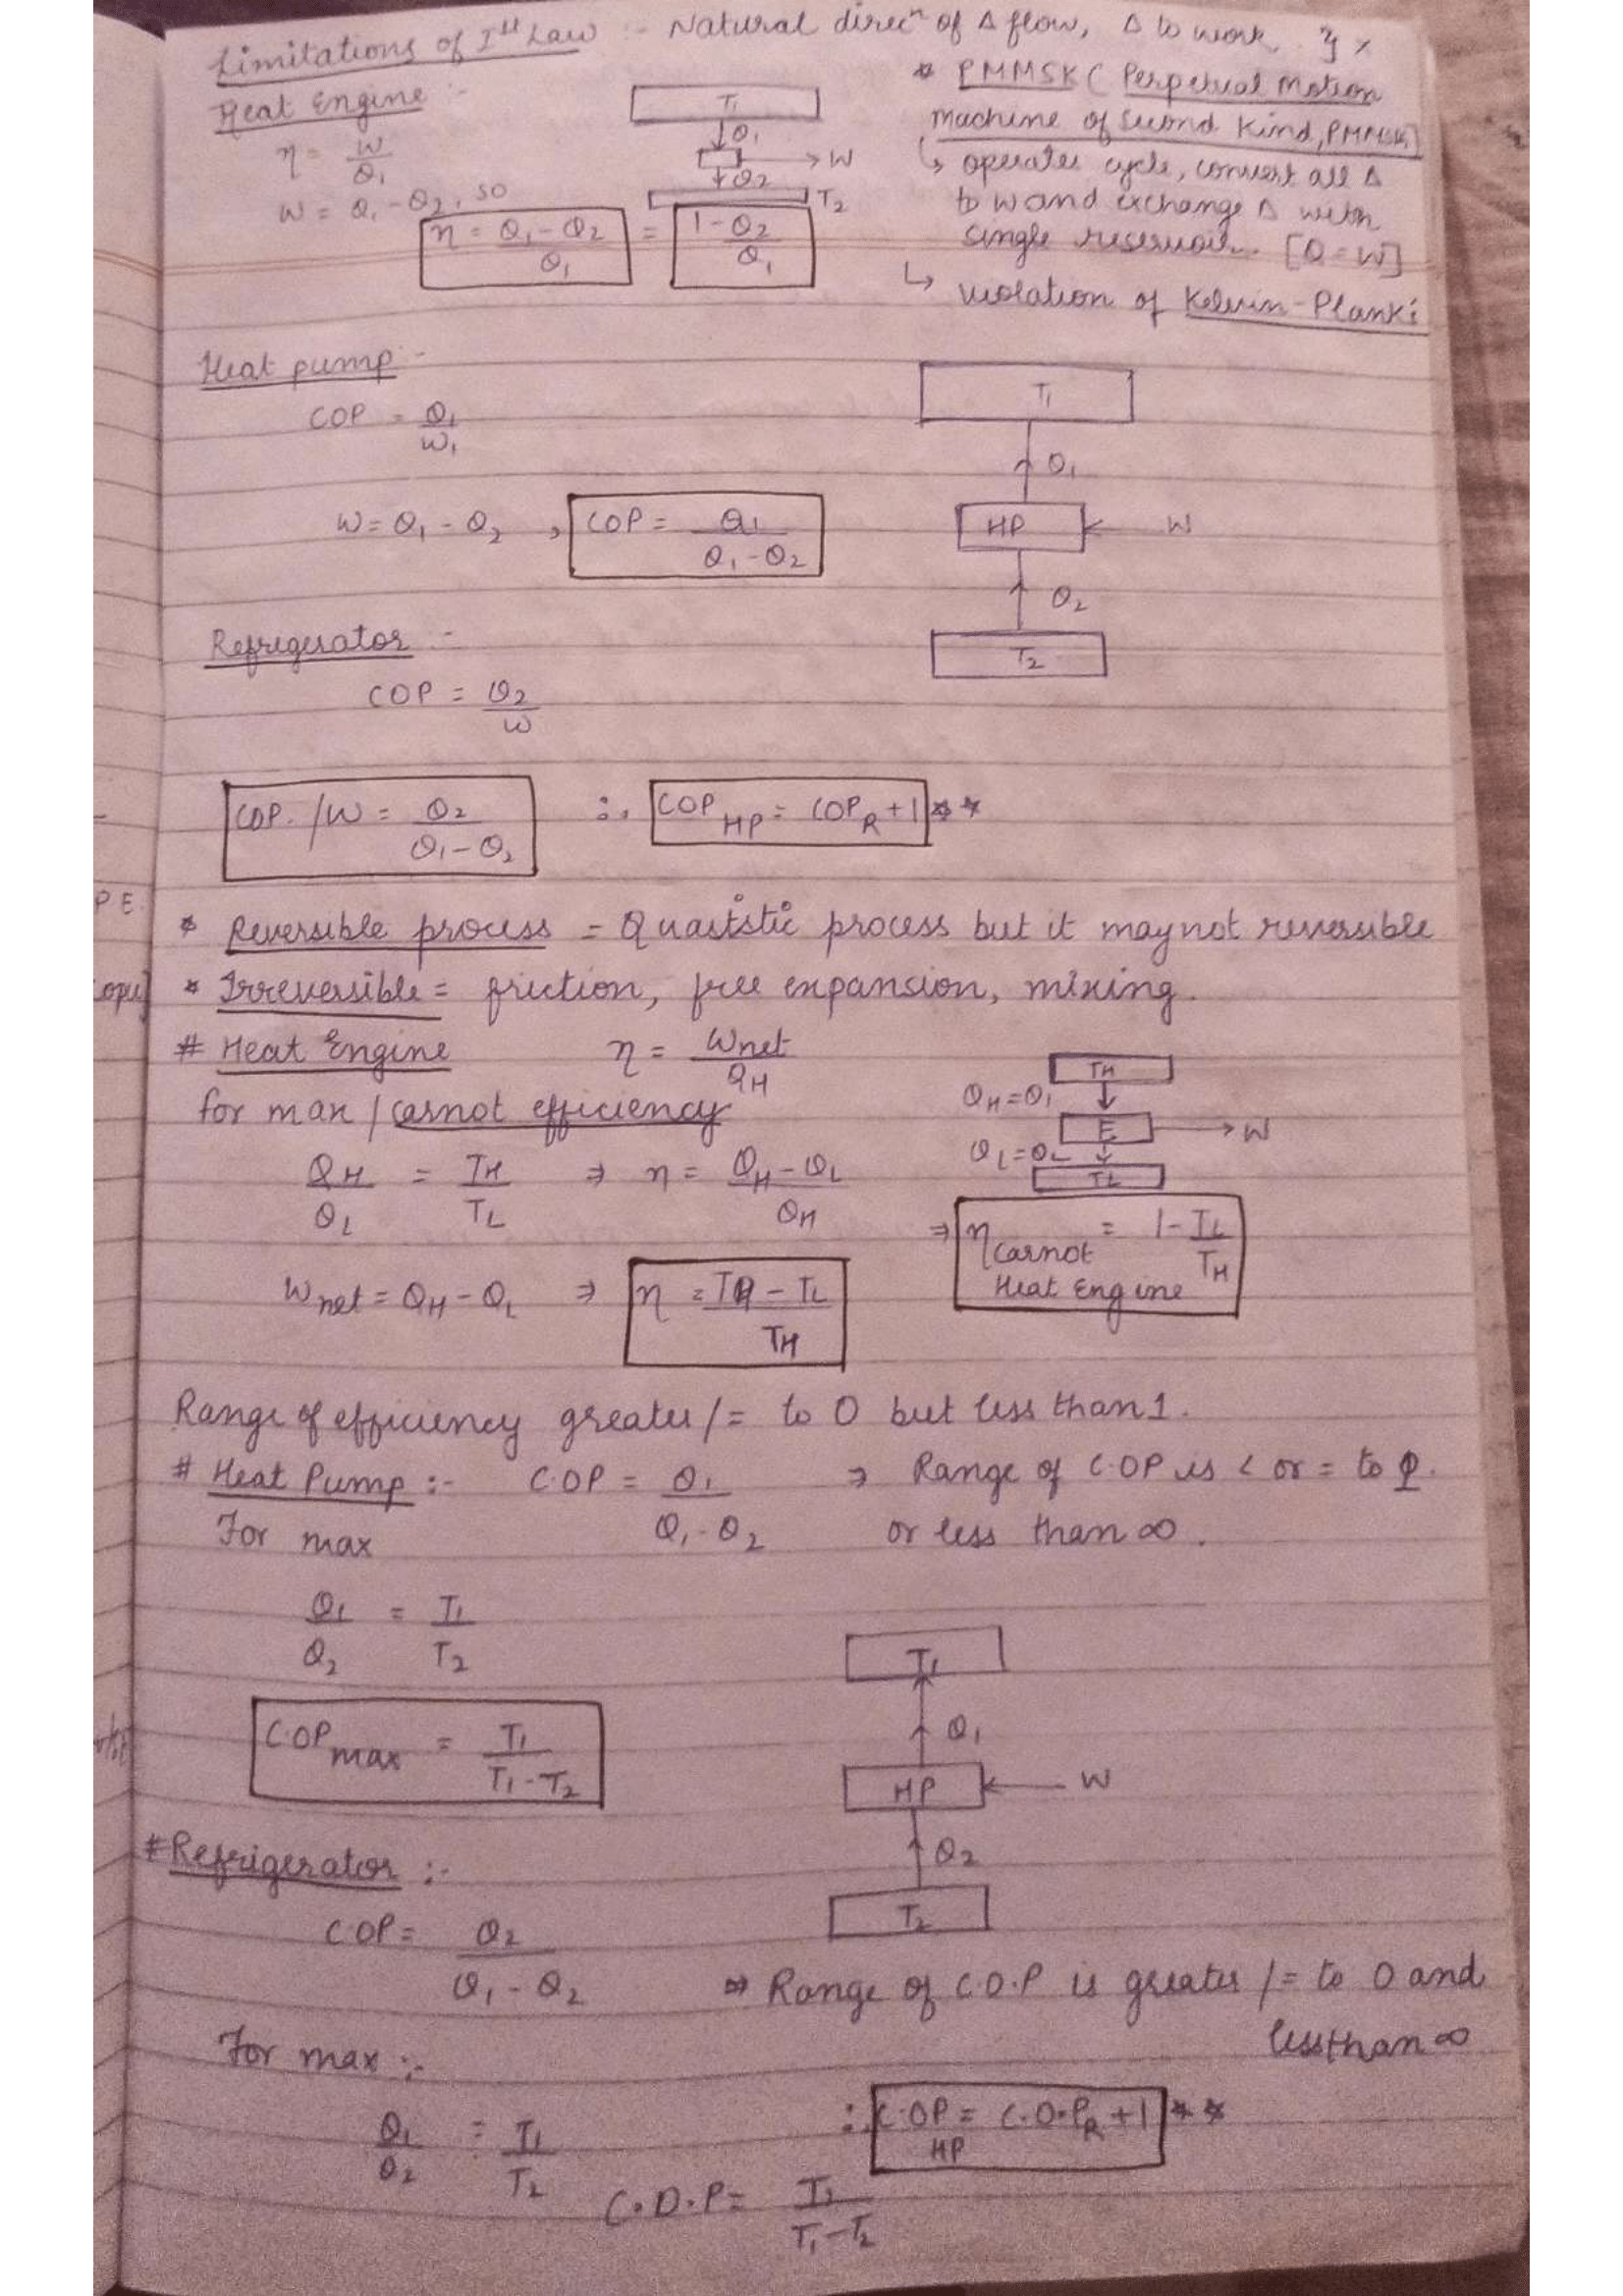 Limitations of Ist Law :- Natural direcⁿ of Δ flow, Δ to work. } ×
Heat Engine :-
η = W/Q₁
W = Q₁ - Q₂, so
η = Q₁ - Q₂/Q₁ = 1 - Q₂/Q₁
T₁
Q₁
W
Q₂
T₂
* PMMSK ( Perpetual Motion
Machine of Second Kind, PMMSK]
↳ operates cycle, convert all Δ
to W and exchange Δ with
single reservoir. [Q = W]
↳ violation of Kelvin-Plank's
Heat pump :-
COP = Q₁/W₁
W = Q₁ - Q₂ , COP = Q₁/Q₁ - Q₂
T₁
Q₁
HP W
Q₂
T₂
Refrigerator :-
COP = Q₂/W
COP. /W = Q₂/Q₁ - Q₂ ∴ COP HP = COP R + 1 **
PE
* Reversible process = QuaistStic process but it maynot reversible
* Irreversible = friction, free expansion, mixing.
# Heat Engine η = Wnet/QH
for max / carnot efficiency
QH/QL = TH/TL ⇒ η = QH - QL/QH
TH
QH = Q₁
E W
QL = QL
TL
⇒ η Carnot Heat Engine = 1 - TL/TH
Wnet = QH - QL ⇒ η = TH - TL/TH
Range of efficiency greater /= to 0 but less than 1.
# Heat Pump :- C.OP = Q₁/Q₁ - Q₂ ⇒ Range of C.OP is < or = to 1.
For max or less than ∞.
Q₁/Q₂ = T₁/T₂
C.OP max = T₁/T₁ - T₂
T₁
Q₁
HP W
Q₂
T₂
# Refrigerator :-
C.OP = Q₂/Q₁ - Q₂
⇒ Range of C.O.P is greater /= to 0 and
less than ∞
For max :-
∴ C.OP HP = C.O.P R + 1 **
Q₁/Q₂ = T₁/T₂
C.O.P = T₂/T₁ - T₂